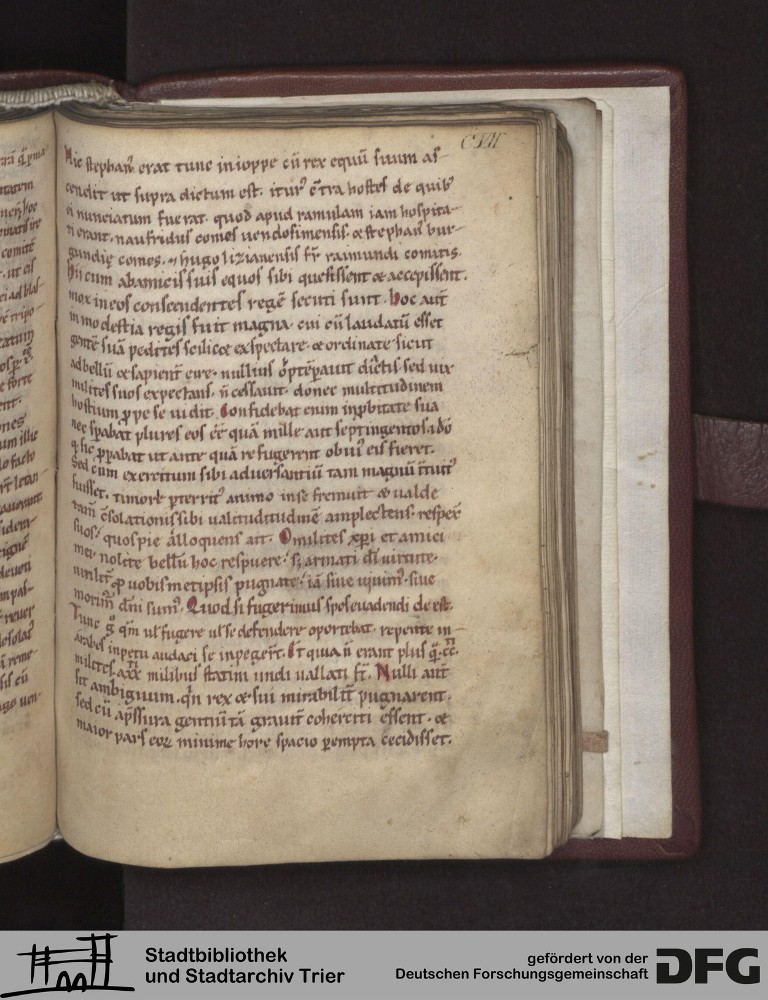 CVII
Hic stephan᷒ erat tunc in ioppe cū rex equū suum as-
cendit ut supra dictum est. itur᷒ c̄tra hostes de quib᷒
ei nunciatum fuerat. quod apud ramulam iam hospita-
ti erant. naufridus comes uendosimensis. & stephan᷒ bur-
gundię comes. hugo lizianensis fr̄ raimundi comitis.
Hii cum ab amicis suis equos sibi quesissent & accepissent.
mox in eos conscendentes regē secuti sunt. Hoc aut̄
inmodestia regis fuit magna. cui cū laudatū esset
gentē suā pedites scilic& exspectare. & ordinate sicut
ad bellū & sapient̄ eire. nullius op̄tēpauit dictis. sed uix
milites suos expectans. n̄ cessauit. donec multitudinem
hostium ꝓpe se uidit. Confidebat enim in ꝓbitate sua
nec spabat plures eos eē quā mille aut septingentos. idō
q᷒ sic ꝓpabat ut ante quā refugerent obui᷒ eis fieret.
Sed cum exercitum sibi aduersantiū tam magnū ītuit᷒
fuisset. timore pterrit᷒ animo inse fremuit & ualde
tam̄ c̄solationis sibi ualitudinē amplectens. respex̄
suos. quos pie alloquens ait. O milites xpi et amici
mei. nolite bellū hoc respuere. s; armati dī uirtute.
uiriliт̄ ꝓ uobismetipsis pugnate. iā siue uiuim᷒. siue
morim̄ dn̄i sum᷒. Quod si fugerimus spes euadendi deest.
Tunc g̊ qm̄ ul fugere ul se defendere oportebat. repente in
árabes inpetu audaci se inpeger̄t. Et quia n̄ erant plus q̄. cc.
milites. a xx milibus statim undi uallati st̄. Nulli aut̄
sit ambiguum. q̄n rex & sui mirabilit̄ pugnarent.
sed cū a pssura gentiū tā grauit̄ coherciti essent. &
maior pars eoꝝ minime hore spacio pempta cecidisset.
Stadtbibliothek
und Stadtarchiv Trier
gefördert von der
Deutschen Forschungsgemeinschaft
DFG